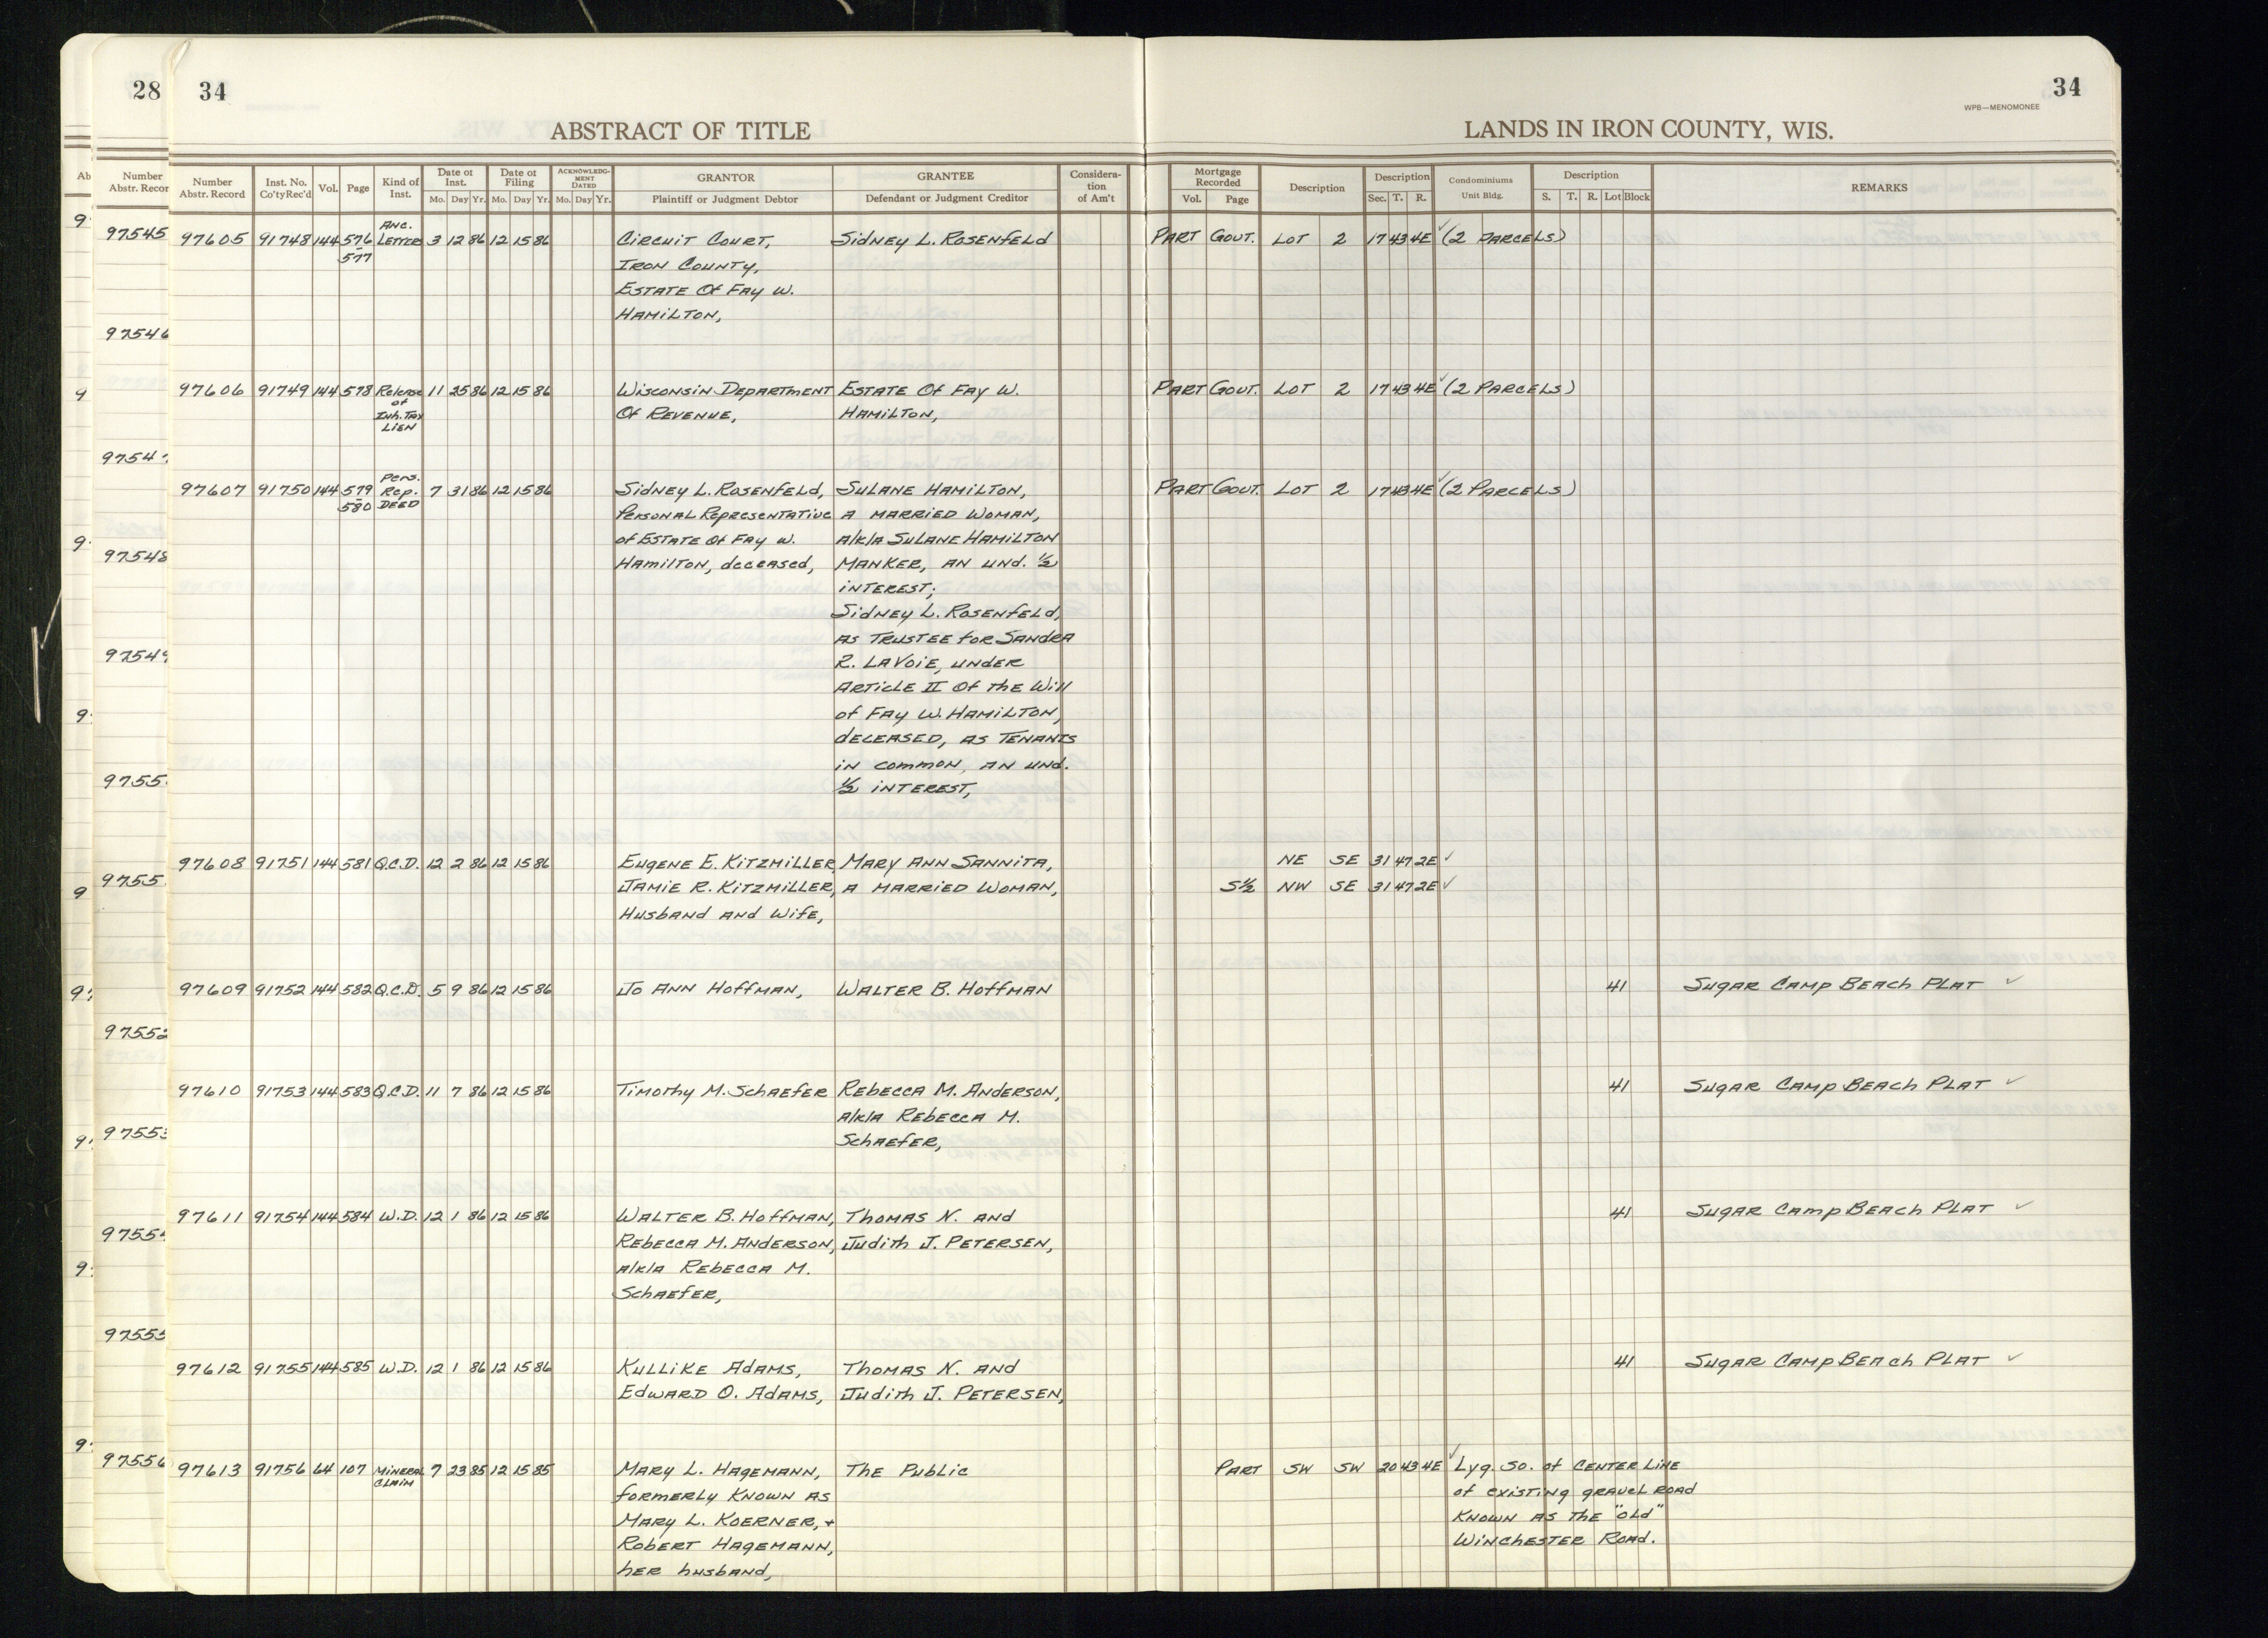 28 34
ABSTRACT OF TITLE
34
WPB—MENOMONEE
LANDS IN IRON COUNTY, WIS.
Number Abstr. Record | Inst. No. Co'ty Rec'd | Vol. | Page | Kind of Inst. | Date of Inst. Mo. Day Yr. | Date of Filing Mo. Day Yr. | ACKNOWLEDGMENT DATED Mo. Day Yr. | GRANTOR Plaintiff or Judgment Debtor | GRANTEE Defendant or Judgment Creditor | Consideration of Am't | Mortgage Recorded Vol. Page | Description | Description Sec. T. R. | Condominiums Unit Bldg. | Description S. T. R. Lot Block | REMARKS
97605 91748 144 576-577 Anc. Letters 3 12 86 12 15 86 Circuit Court, Sidney L. Rosenfeld Part Gout. Lot 2 17 43 4E ✓ (2 Parcels)
Iron County,
Estate Of Fay W.
Hamilton,
97606 91749 144 578 Release of Inh. Tax Lien 11 25 86 12 15 86 Wisconsin Department Estate Of Fay W. Part Gout. Lot 2 17 43 4E ✓ (2 Parcels)
Of Revenue, Hamilton,
97607 91750 144 579-580 Pers. Rep. Deed 7 31 86 12 15 86 Sidney L. Rosenfeld, Sulane Hamilton, Part Gout. Lot 2 17 43 4E ✓ (2 Parcels)
Personal Representative A Married Woman,
of Estate Of Fay W. a/k/a Sulane Hamilton
Hamilton, deceased, Manker, an und. 1/2
interest;
Sidney L. Rosenfeld,
as Trustee for Sandra
R. LaVoie, under
Article II Of the Will
of Fay W. Hamilton,
deceased, as Tenants
in common, an und.
1/2 interest,
97608 91751 144 581 Q.C.D. 12 2 86 12 15 86 Eugene E. Kitzmiller, Mary Ann Sannita, NE SE 31 47 2E ✓
Jamie R. Kitzmiller, a married woman, S1/2 NW SE 31 47 2E ✓
Husband and Wife,
97609 91752 144 582 Q.C.D. 5 9 86 12 15 86 Jo Ann Hoffman, Walter B. Hoffman 41 Sugar Camp Beach Plat ✓
97610 91753 144 583 Q.C.D. 11 7 86 12 15 86 Timothy M. Schaefer Rebecca M. Anderson, 41 Sugar Camp Beach Plat ✓
a/k/a Rebecca M.
Schaefer,
97611 91754 144 584 W.D. 12 1 86 12 15 86 Walter B. Hoffman, Thomas N. and 41 Sugar Camp Beach Plat ✓
Rebecca M. Anderson, Judith J. Petersen,
a/k/a Rebecca M.
Schaefer,
97612 91755 144 585 W.D. 12 1 86 12 15 86 Kullike Adams, Thomas N. and 41 Sugar Camp Beach Plat ✓
Edward O. Adams, Judith J. Petersen,
97613 91756 64 107 Mineral Claim 7 23 85 12 15 85 Mary L. Hagemann, The Public Part SW SW 20 43 4E ✓ Lyg. So. of Center Line
formerly Known as of existing gravel road
Mary L. Koerner, + Known as the "Old"
Robert Hagemann, Winchester Road.
her husband,
Number
Abstr. Recor
97545
97546
97548
97549
97552
97553
97555
97556